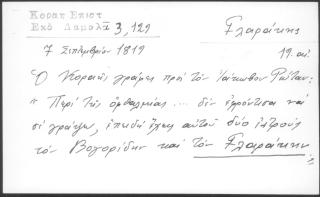 Κοραη Επιστ
Εκδ Δαμαλ 3, 129
Γλαράκης
7 Σεπτεμβρίου 1819
19. αι.
Ὁ Κοραῆς γράφει πρὸς τὸν Ἰάκωβον Ρώταν:
"Περὶ τῆς ὀφθαλμίας ... δὲν ἐφρόντισα νὰ
σὲ γράψω, ἐπειδὴ ἔχεις αὐτοῦ δύο ἰατροὺς
τὸν Βογορίδην καὶ τὸν Γλαράκην